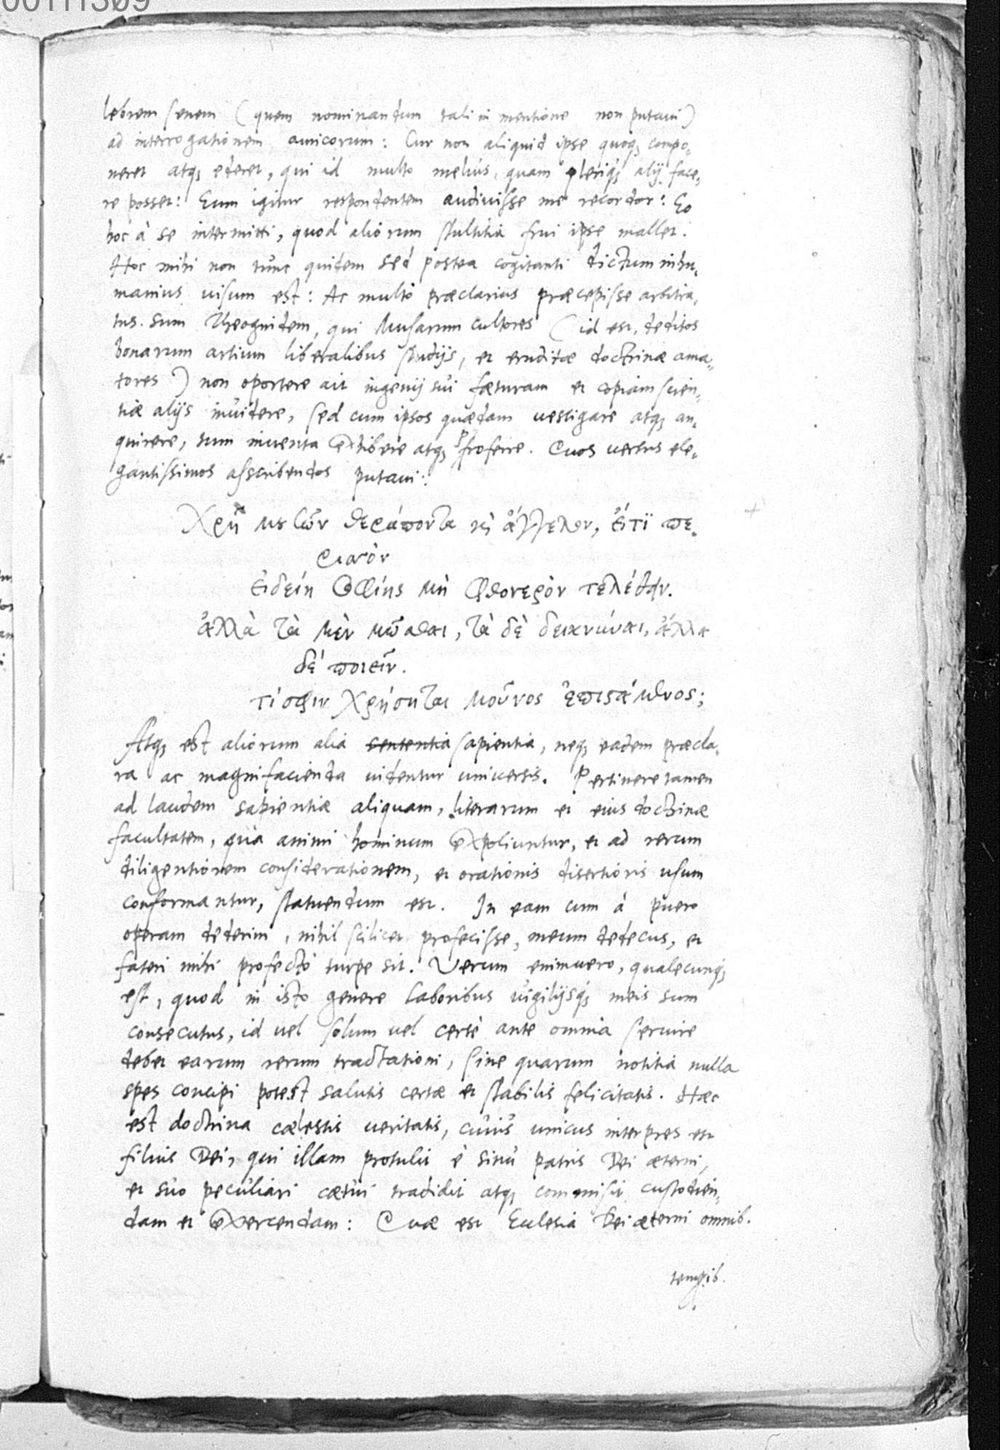 00111309
lebrem senem (quem nominandum tali in mentione non putaui)
ad interrogationem amicorum: Cur non aliquid ipse quoq; compo-
neret atq; ederet, qui id multo melius, quam pleriq; alij face-
re posset: Eum igitur respondentem audiuisse me recordor: Eo
hoc à se intermitti, quod aliorum stultitia frui ipse mallet.
Hoc mihi non tunc quidem sed postea cogitanti dictum inhu-
manius uisum est: Ac multò præclarius præcepisse arbitra-
tus sum Theognidem, qui Musarum cultores (id est, deditos
bonarum artium liberalibus studijs, et eruditæ doctrinæ ama-
tores) non oportere ait ingenij sui fæturam et copiam scien-
tiæ alijs inuidere, sed cum ipsos quædam uestigare atq; an-
quirere, tum inuenta exhibere atq; proferre. Cuos uersus ele-
gantissimos asscribendos putaui:
Χρὴ μουσῶν θεράποντα καὶ ἄγγελον, εἴ τι πε-
ρισσὸν
εἰδείη σοφίης μὴ φθονερὸν τελέθειν.
ἀλλὰ τὰ μὲν μῶσθαι, τὰ δὲ δεικνύναι, ἄλλα
δὲ ποιεῖν.
τί σφιν χρήσηται μοῦνος ἐπιστάμενος;
Atq; est aliorum alia sententia sapientia, neq; eadem præcla-
ra ac magnifacienda uidentur uniuersis. Pertinere tamen
ad laudem sapientiæ aliquam, literarum et eius doctrinæ
facultatem, qua animi hominum expoliuntur, et ad rerum
diligentiorem considerationem, et orationis disertioris usum
conformantur, statuendum est. In eam cum à puero
operam dederim, nihil scilicet profecisse, meum dedecus, et
fateri mihi profectò turpe sit. Verum enimuero, qualecunq;
est, quod in isto genere laboribus uigilijsq; meis sum
consecutus, id uel solum uel certè ante omnia seruire
debet earum rerum tractationi, sine quarum notitia nulla
spes concipi potest salutis certæ et stabilis felicitatis. Hæc
est doctrina cælestis ueritatis, cuius unicus interpres est
filius Dei, qui illam protulit è sinu patris Dei æterni,
et suo peculiari cætui tradidit atq; commisit, custodien-
dam et exercendam: Cuæ est Eclesia Dei æterni omnib.
tempib.